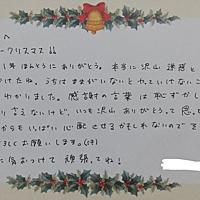 へ
ークリスマス!!
1年ほんとうにありがとう。本当に沢山迷惑
けたね。うちはままがいないとやっていけないこ
わかりました。感謝の言葉は恥ずかし
り言えないけど、いつも沢山ありがとうって思っ
からもいっぱい心配させるかもしれないので
ろしくお願いします。
に気をつけて頑張ってね!